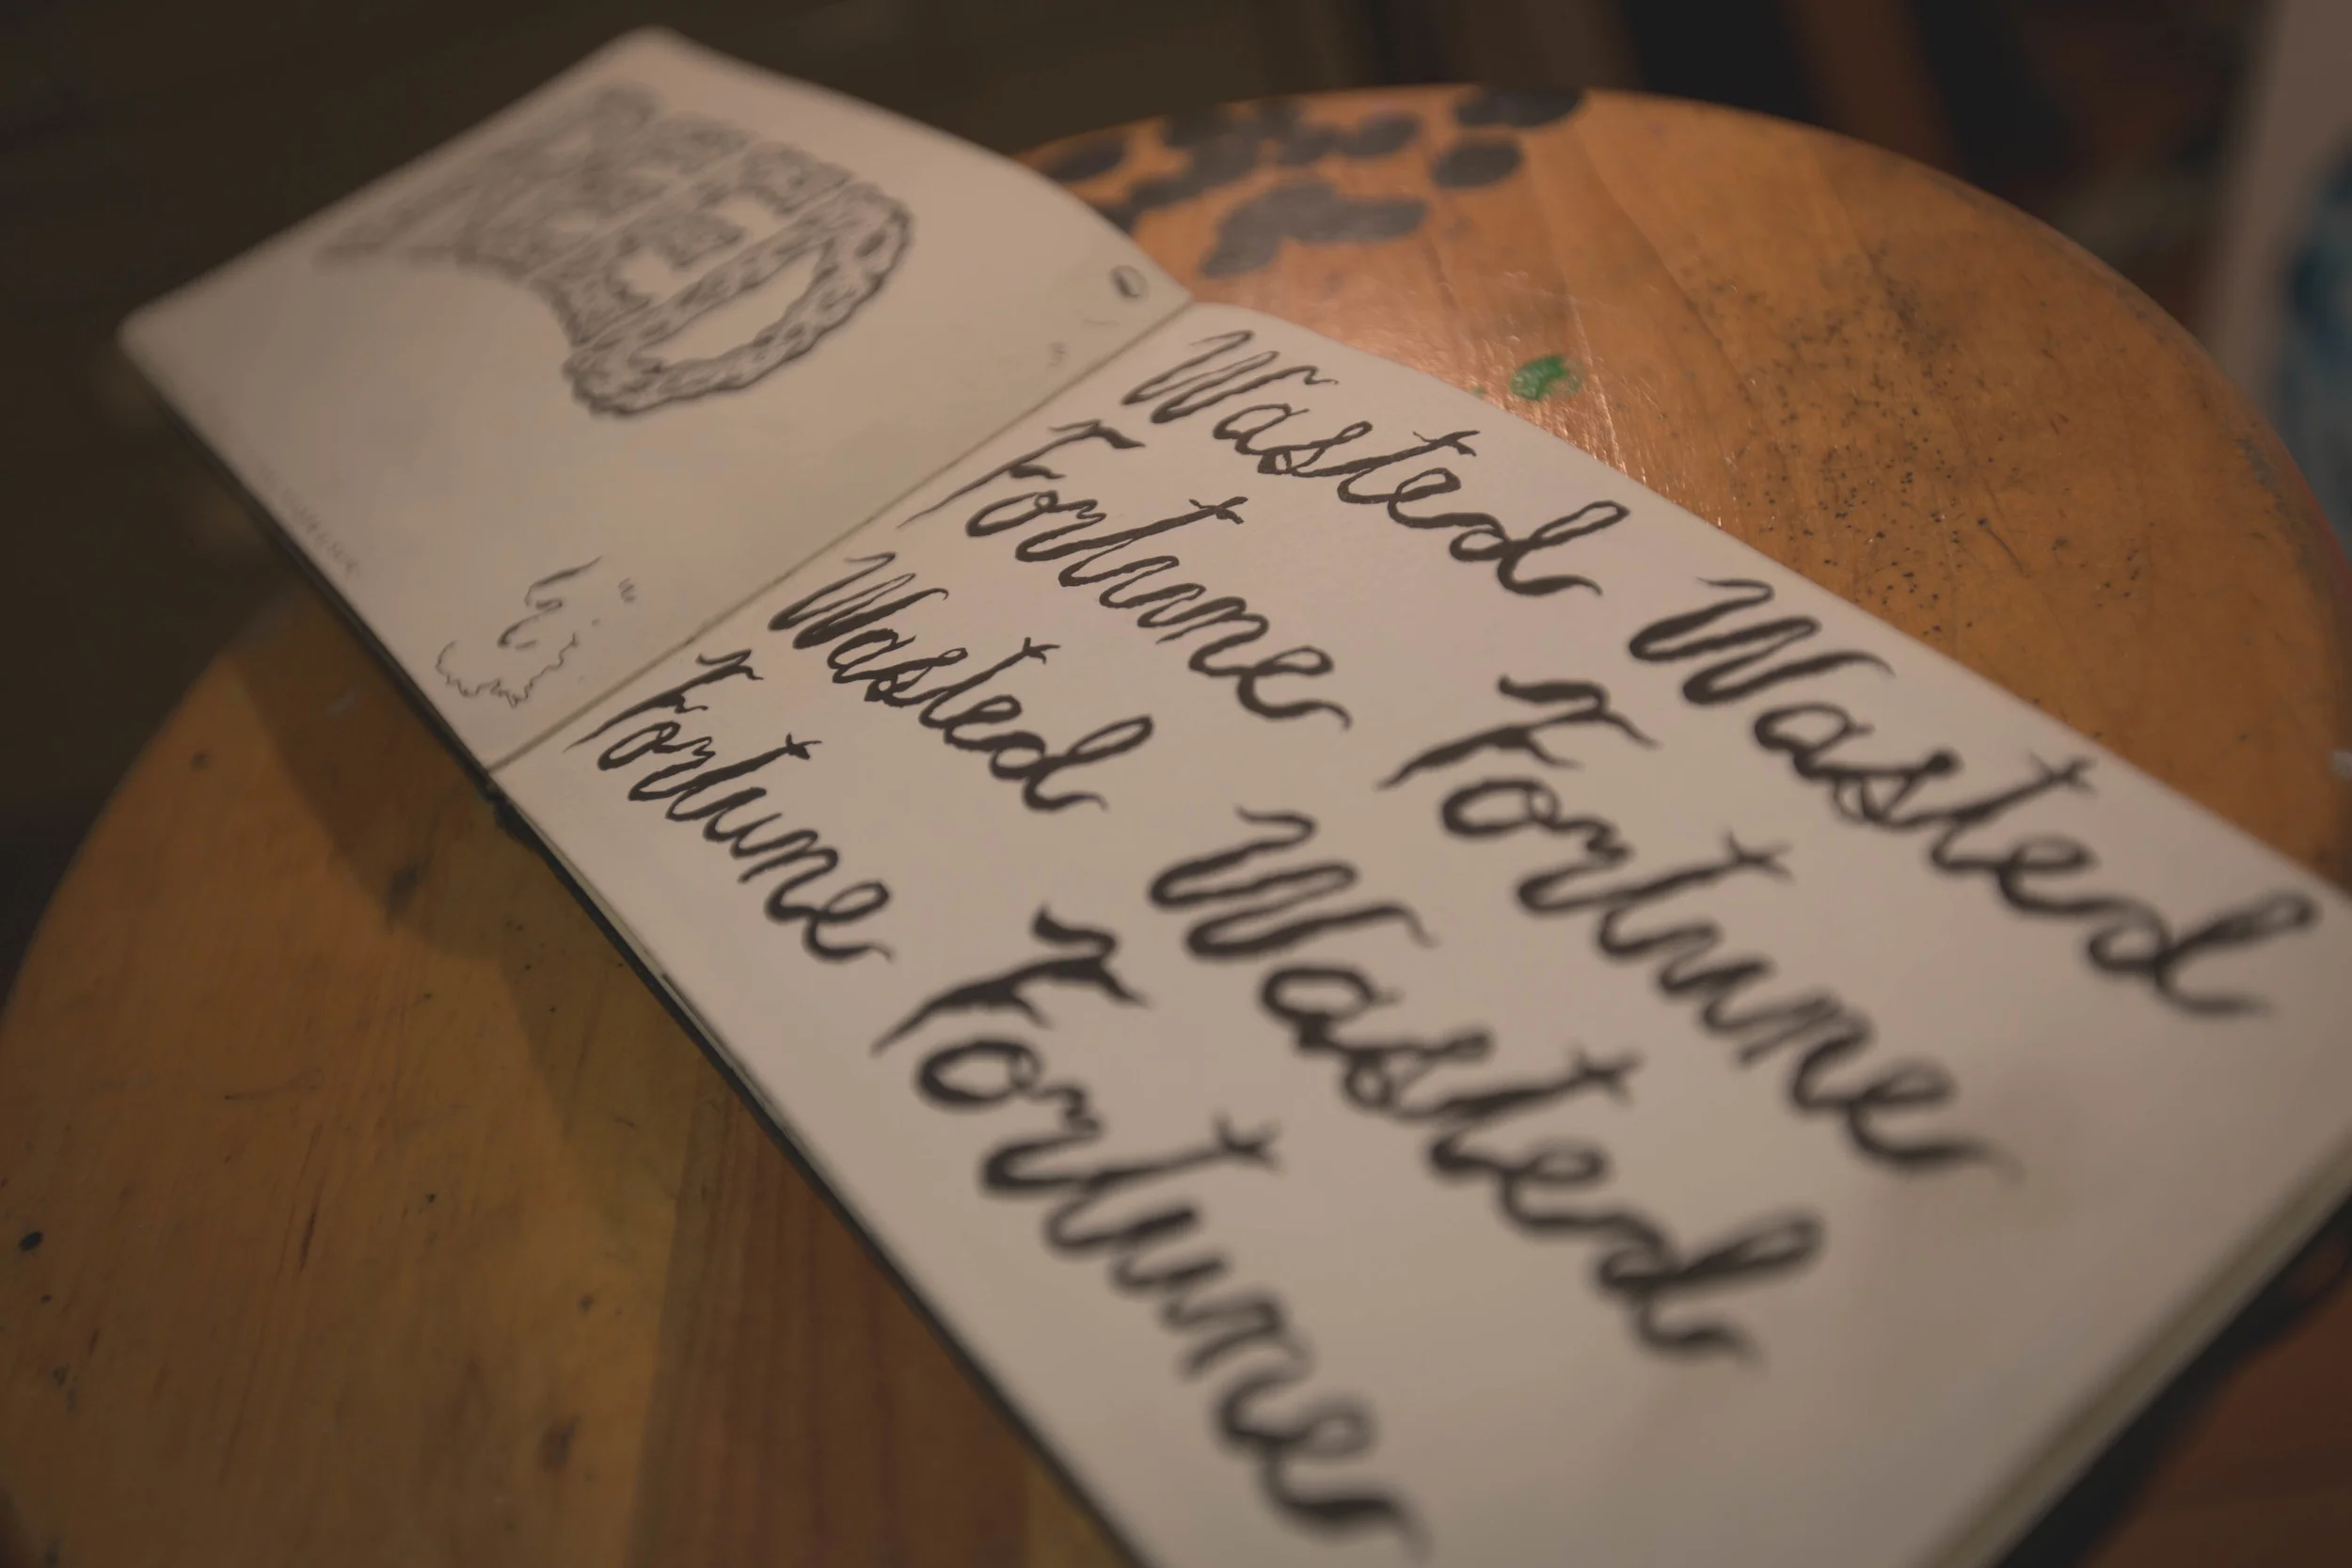 Wasted Wasted
Fortune Fortune
Wasted Wasted
Fortune Fortune